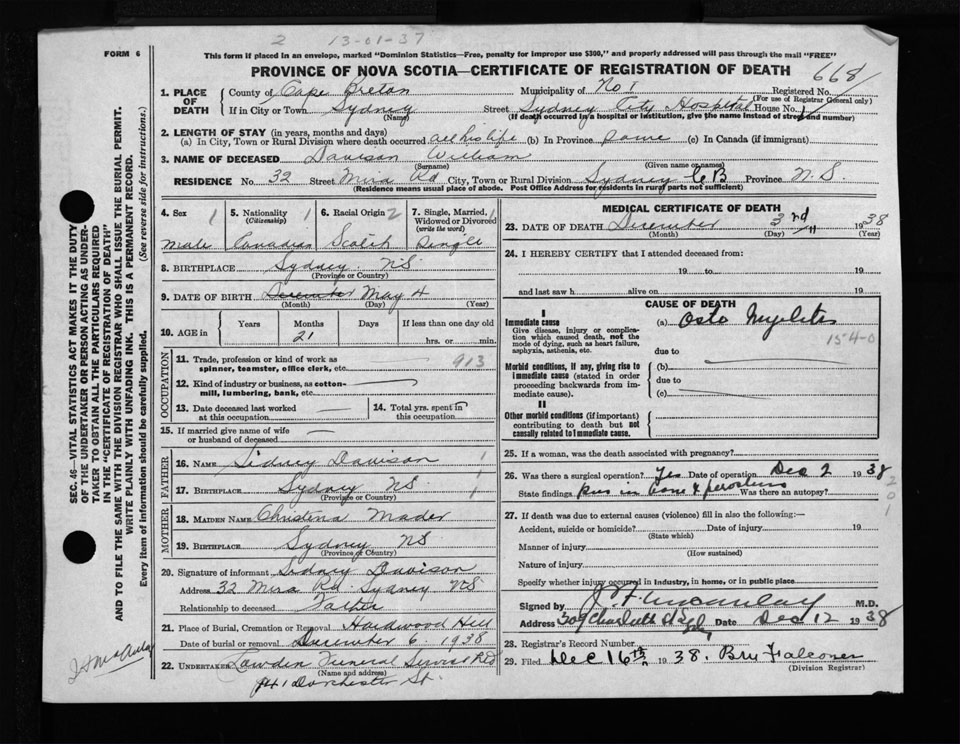 2 13-01-37
FORM 6
This form if placed in an envelope, marked "Dominion Statistics—Free, penalty for improper use $300," and properly addressed will pass through the mail "FREE"
PROVINCE OF NOVA SCOTIA—CERTIFICATE OF REGISTRATION OF DEATH
668
SEC. 46—VITAL STATISTICS ACT MAKES IT THE DUTY
OF THE UNDERTAKER OR PERSON ACTING AS UNDER-
TAKER TO OBTAIN ALL THE PARTICULARS REQUIRED
IN THE "CERTIFICATE OF REGISTRATION OF DEATH"
AND TO FILE THE SAME WITH THE DIVISION REGISTRAR WHO SHALL ISSUE THE BURIAL PERMIT.
WRITE PLAINLY WITH UNFADING INK. THIS IS A PERMANENT RECORD.
Every item of information should be carefully supplied. (See reverse side for instructions.)
1. PLACE OF DEATH County of Cape Breton Municipality of No 1 Registered No.
(For use of Registrar General only)
If in City or Town Sydney Street Sydney City Hospital House No.
(Name) (If death occurred in a hospital or institution, give the name instead of street and number)
2. LENGTH OF STAY (in years, months and days)
(a) In City, Town or Rural Division where death occurred all his life (b) In Province same (c) In Canada (if immigrant)
3. NAME OF DECEASED Davison William
(Surname) (Given name or names)
RESIDENCE No. 32 Street Mira Rd City, Town or Rural Division Sydney C B Province N. S.
(Residence means usual place of abode. Post Office Address for residents in rural parts not sufficient)
4. Sex 1 5. Nationality 1 6. Racial Origin 2 7. Single, Married, 1
(Citizenship) Widowed or Divorced
(write the word)
Male Canadian Scotch Single
8. BIRTHPLACE Sydney NS
(Province or Country)
9. DATE OF BIRTH December May 4
(Month) (Day) (Year)
10. AGE in Years Months Days If less than one day old
21 hrs. or min.
OCCUPATION
11. Trade, profession or kind of work as
spinner, teamster, office clerk, etc. 913
12. Kind of industry or business, as cotton-
mill, lumbering, bank, etc.
13. Date deceased last worked
at this occupation
14. Total yrs. spent in
this occupation
15. If married give name of wife
or husband of deceased
FATHER
16. NAME Sidney Davison 1
17. BIRTHPLACE Sydney NS 1
(Province or Country)
MOTHER
18. MAIDEN NAME Christina Mader
19. BIRTHPLACE Sydney NS
(Province or Country)
20. Signature of informant Sidney Davison
Address 32 Mira Rd Sydney NS
Relationship to deceased Father
21. Place of Burial, Cremation or Removal Hardwood Hill
Date of burial or removal December 6 1938
22. UNDERTAKER Funeral Service
(Name and address)
Dorchester St.
MEDICAL CERTIFICATE OF DEATH
23. DATE OF DEATH December 3rd 1938
(Month) (Day) (Year)
24. I HEREBY CERTIFY that I attended deceased from:
19 to 19
and last saw h alive on 19
CAUSE OF DEATH
I
Immediate cause
Give disease, injury or complica-
tion which caused death, not the
mode of dying, such as heart failure,
asphyxia, asthenia, etc.
(a) Osto Myelitis
154-0
due to
Morbid conditions, if any, giving rise to
immediate cause (stated in order
proceeding backwards from im-
mediate cause).
(b)
due to
(c)
II
Other morbid conditions (if important)
contributing to death but not
causally related to immediate cause.
25. If a woman, was the death associated with pregnancy?
26. Was there a surgical operation? Yes Date of operation Dec 2 1938
State findings pus in bone & Was there an autopsy?
201
27. If death was due to external causes (violence) fill in also the following:—
Accident, suicide or homicide? Date of injury 19
(State which)
Manner of injury
(How sustained)
Nature of injury
Specify whether injury occurred in industry, in home, or in public place
Signed by M.D.
Address 309 Charlotte St Date Dec 12 1938
28. Registrar's Record Number
29. Filed Dec 16th 1938. Falconer
(Division Registrar)